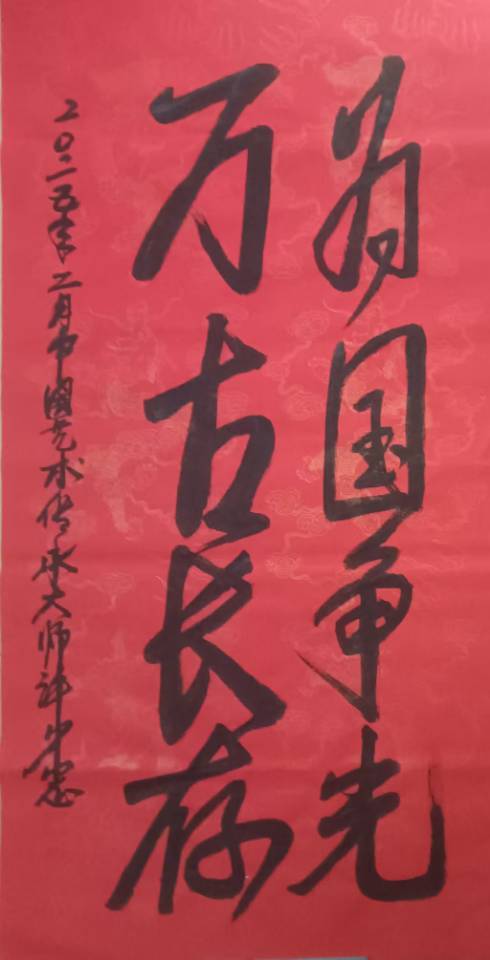 为国争光
万古长存
二〇二五年二月中國艺术传承大师许